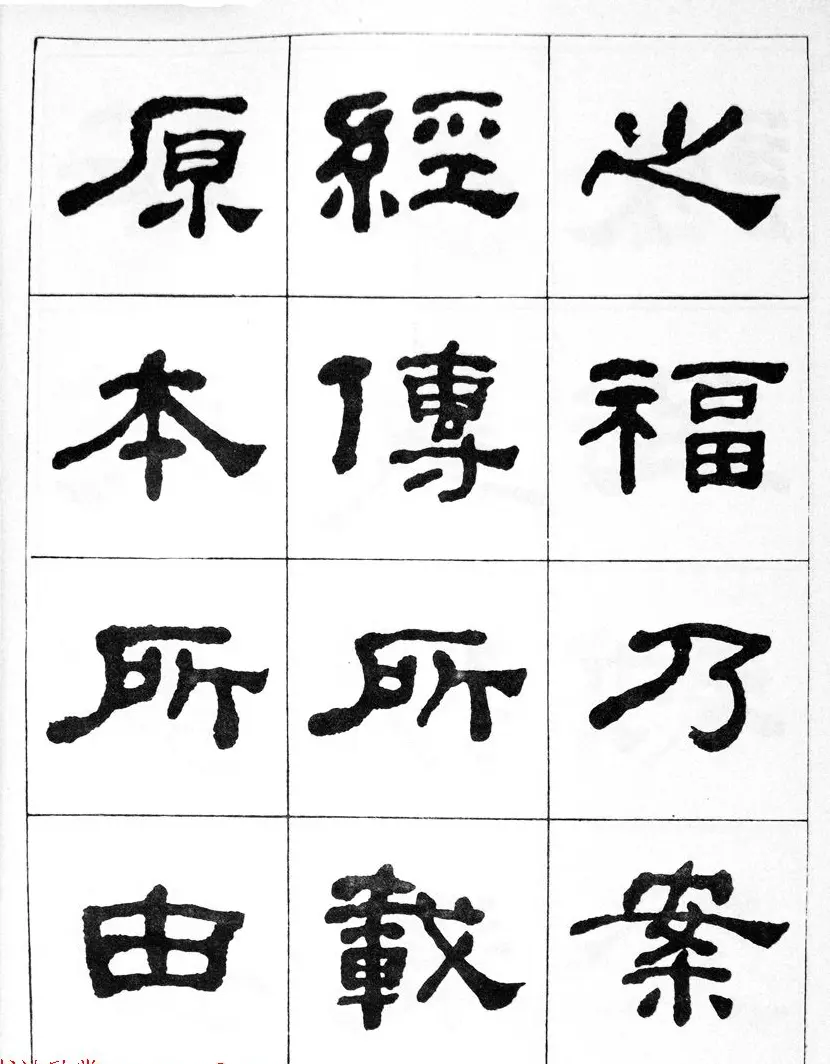 之福乃案
經傳所載
原本所由